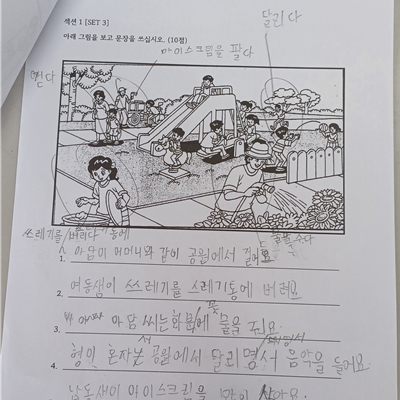 섹션 1 [SET 3]
아래 그림을 보고 문장을 쓰십시오. (10점)
달리다
아이스크림을 팔다
걷다
쓰레기를 버리다
물을 주다
1. 아담이 어머니와 같이 공원에서 걸어요
2. 여동생이 쓰레기를 쓰레기통에 버려요
3. 아담 씨는 물을 줘요.
4. 형이 혼자 공원에서 달리 면서 음악을 들어요
남동생이 아이스크림을